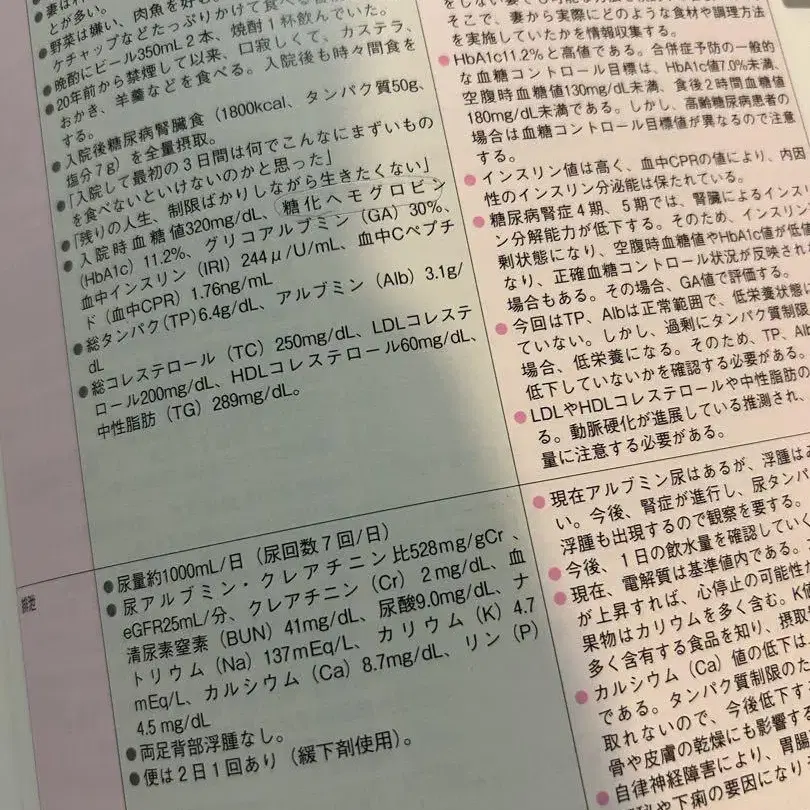 とが多い。
●野菜は嫌い、肉魚を好む。
ケチャップなどたっぷりかけて食べる
●晩酌にビール350mL 2本、焼酎1杯飲んでいた。
●20年前から禁煙して以来、口寂しくて、カステラ、
おかき、羊羹などを食べる。入院後も時々間食を
する。
●入院後糖尿病腎臓食（1800kcal、タンパク質50g、
塩分7g）を全量摂取。
●「入院して最初の3日間は何でこんなにまずいもの
を食べないといけないのかと思った」
●「残りの人生、制限ばかりしながら生きたくない」
●入院時血糖値320mg/dL、糖化ヘモグロビン
(HbA1c) 11.2%、グリコアルブミン（GA）30%、
血中インスリン（IRI）244μ/U/mL、血中Cペプチ
ド（血中CPR）1.76ng/mL
●総タンパク(TP)6.4g/dL、アルブミン（Alb）3.1g/
dL
●総コレステロール（TC）250mg/dL、LDLコレステ
ロール200mg/dL、HDLコレステロール60mg/dL、
中性脂肪（TG）289mg/dL。
排泄
●尿量約1000mL/日（尿回数7回/日）
●尿アルブミン・クレアチニン比528mg/gCr、
eGFR25mL/分、クレアチニン（Cr）2mg/dL、血
清尿素窒素（BUN）41mg/dL、尿酸9.0mg/dL、ナ
トリウム（Na）137mEq/L、カリウム（K）4.7
mEq/L、カルシウム（Ca）8.7mg/dL、リン（P）
4.5 mg/dL
●両足背部浮腫なし。
●便は2日1回あり（緩下剤使用）。
そこで、妻から実際にどのような食材や調理方法
を実施していたかを情報収集する。
●HbA1c11.2%と高値である。合併症予防の一般的
な血糖コントロール目標は、HbA1c値7.0%未満、
空腹時血糖値130mg/dL未満、食後2時間血糖値
180mg/dL未満である。しかし、高齢糖尿病患者の
場合は血糖コントロール目標値が異なるので注意
する。
●インスリン値は高く、血中CPRの値により、内因
性のインスリン分泌能は保たれている。
●糖尿病腎症4期、5期では、腎臓によるインス
ン分解能力が低下する。そのため、インスリン
剰状態になり、空腹時血糖値やHbA1c値が低値
なり、正確血糖コントロール状況が反映され
場合もある。その場合、GA値で評価する。
●今回はTP、Albは正常範囲で、低栄養状態に
ていない。しかし、過剰にタンパク質制限
場合、低栄養になる。そのため、TP、Alb
低下していないかを確認する必要がある。
●LDLやHDLコレステロールや中性脂肪の
る。動脈硬化が進展している推測され、
量に注意する必要がある。
●現在アルブミン尿はあるが、浮腫は
い。今後、腎症が進行し、尿タンパ
浮腫も出現するので観察を要する。
●今後、1日の飲水量を確認していく
●現在、電解質は基準値内である。
が上昇すれば、心停止の可能性が
果物はカリウムを多く含む。K値
多く含有する食品を知り、摂取
●カルシウム（Ca）値の低下は、
である。タンパク質制限のた
取れないので、今後低下す
骨や皮膚の乾燥にも影響する
●自律神経障害により、胃腸
や下痢の要因になり